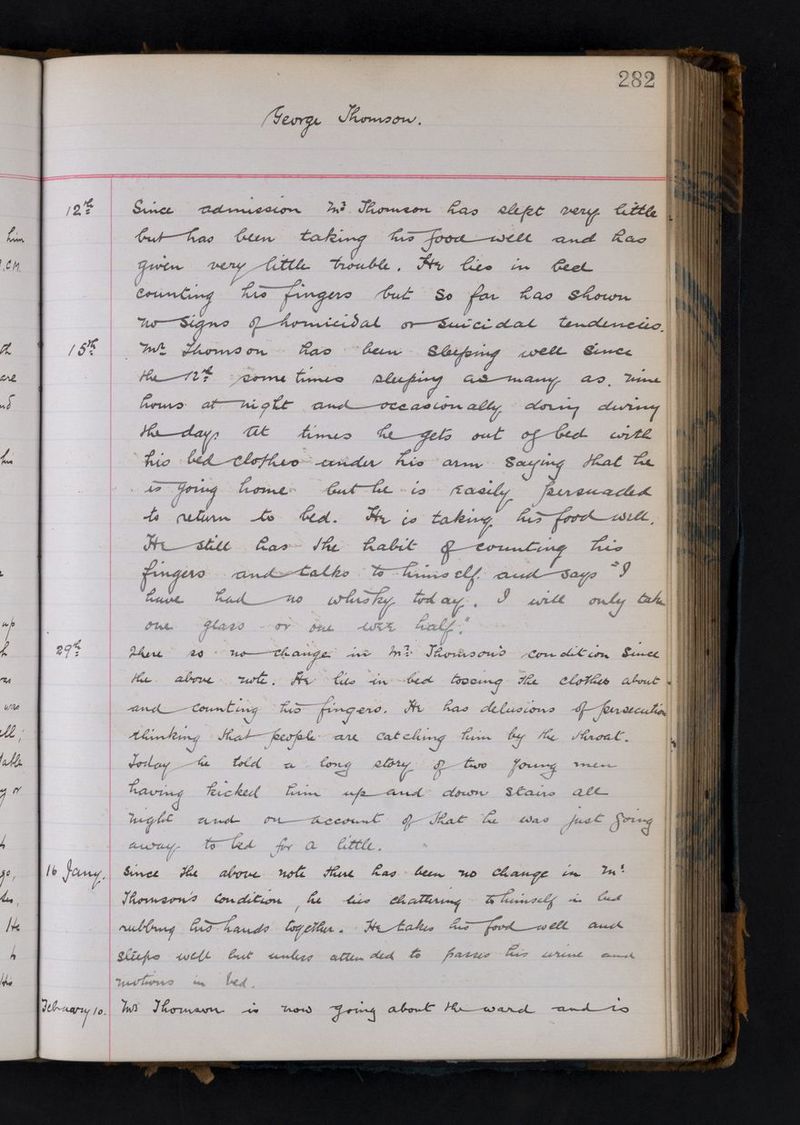 282
George Thomson.
12th Since admission Mr Thomson has slept very little
but has been taking his food well and has
given very little trouble. He lies in bed
counting his fingers but so far has shown
no signs of homicidal or suicidal tendencies.
15th Mr Thomson has been sleeping well since
the 12th sometimes sleeping as many as nine
hours at night and occasionally dosing during
the day. At times he gets out of bed with
his bed clothes under his arm saying that he
is going home but he is easily persuaded
to return to bed. He is taking his food well.
He still has the habit of counting his
fingers and talks to himself and says "I
have had no whisky today. I will only take
one glass or one wee half."
29th There is no change in Mr Thomson's condition since
the above note. He lies in bed tossing the clothes about
and counting his fingers. He has delusions of persecution
thinking that people are catching him by the throat.
Today he told a long story of two young men
having kicked him up and down stairs all
night and on account of that he was just going
away to bed for a little.
16 Jany. Since the above note there has been no change in Mr
Thomson's condition, he lies chattering to himself in bed
rubbing his hands together. He takes his food well and
sleeps well but unless attended to passes his urine and
motions in bed.
February 10. Mr Thomson is now going about the ward and is